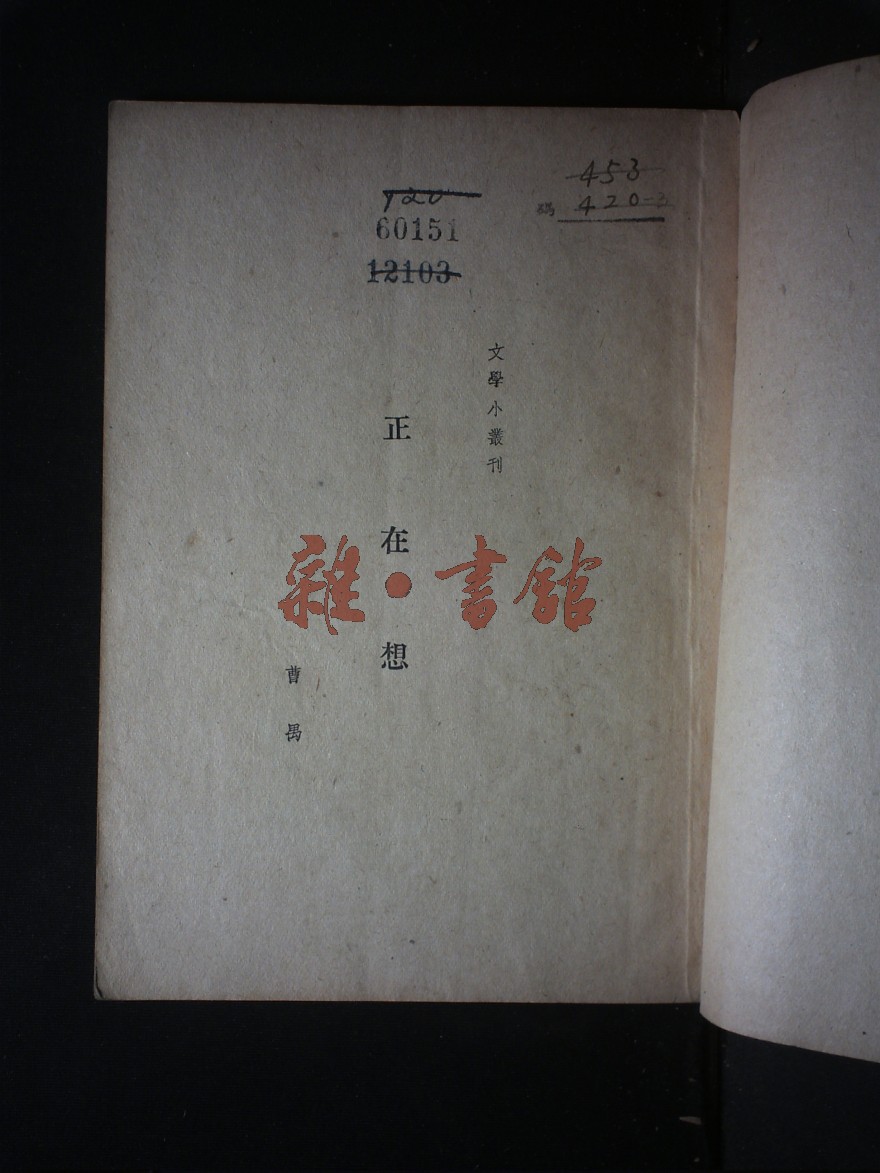 453
420-3
420
60151
12103
文學小叢刊
正在想
曹禺
雜•書館